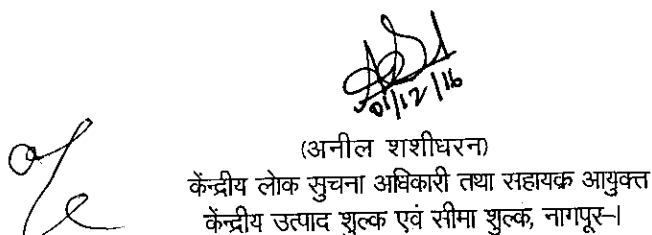 01/12/16
(अनील शशीधरन)
केंन्द्रीय लोक सुचना अधिकारी तथा सहायक्र आयुक्त
केंन्द्रीय उत्पाद शुल्क एवं सीमा शुल्क, नागपूर-I